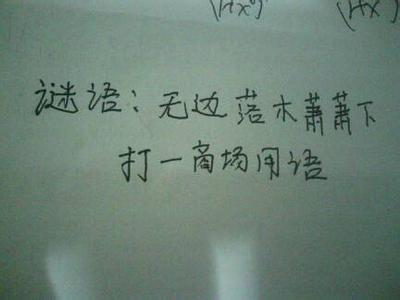 (1+x⁰) (1+x)
谜语：无边落木萧萧下
打一商场用语